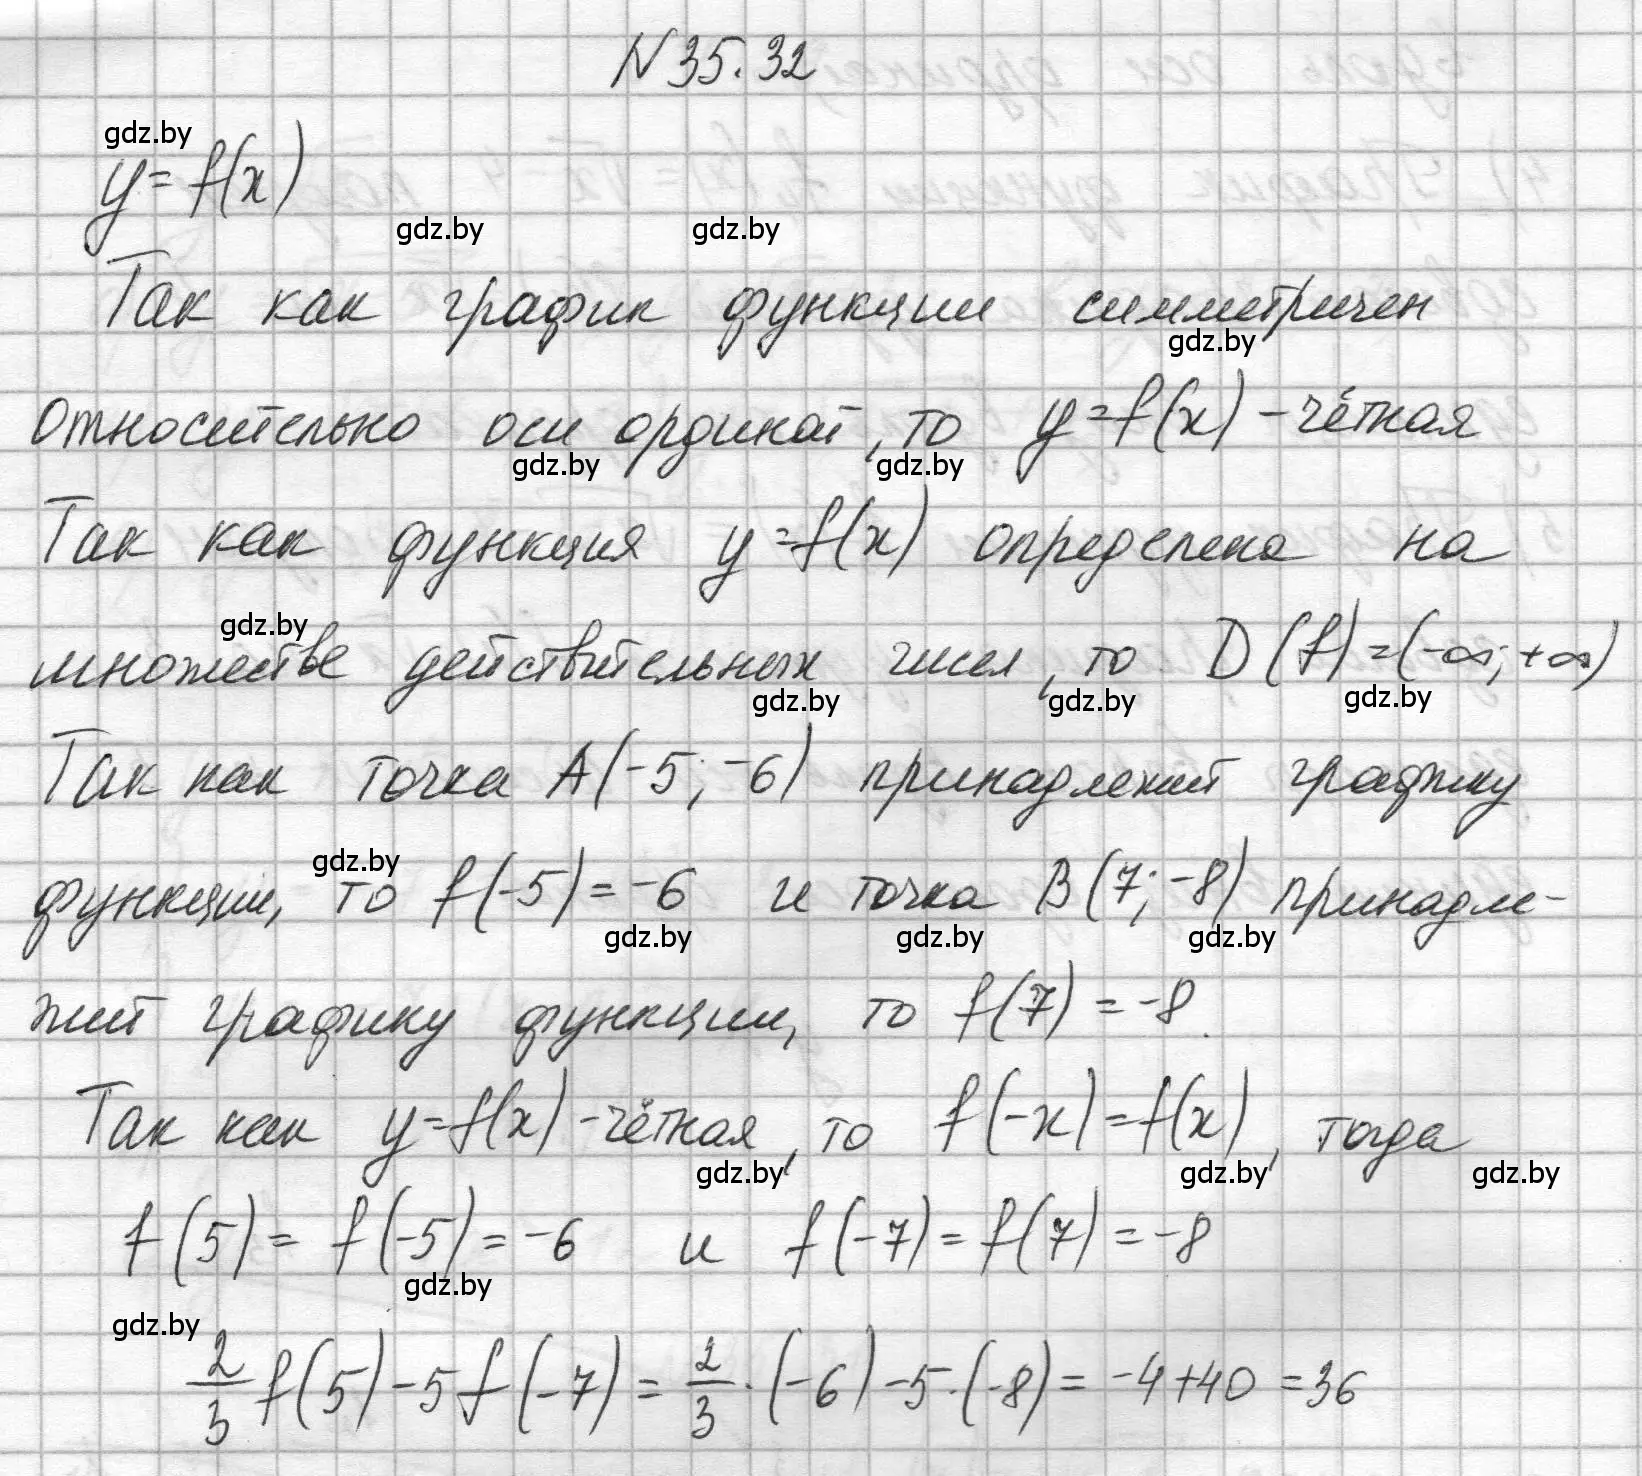 N 35.32
gdz.by
y = f(x)
gdz.by gdz.by
Так как график функции симметричен
gdz.by
относительно оси ординат, то y = f(x) - чётная
gdz.by gdz.by
Так как функция y = f(x) определена на
gdz.by
множестве действительных чисел, то D(f) = (-∞; +∞)
gdz.by gdz.by gdz.by
Так как точка A(-5; -6) принадлежит графику
gdz.by
функции, то f(-5) = -6 и точка B(7; -8) принадле-
gdz.by gdz.by gdz.by
жит графику функции, то f(7) = -8.
Так как y = f(x) - чётная, то f(-x) = f(x), тогда
gdz.by gdz.by gdz.by
f(5) = f(-5) = -6 и f(-7) = f(7) = -8
gdz.by
gdz.by
2/3 f(5) - 5f(-7) = 2/3 · (-6) - 5 · (-8) = -4 + 40 = 36